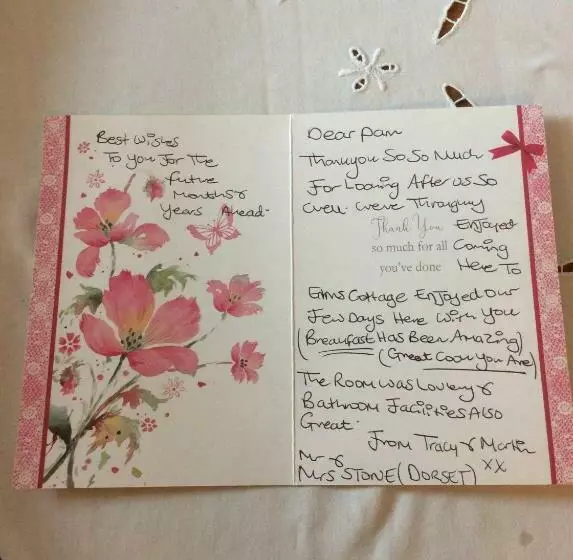 Best Wishes
To You For The
Future
Months &
Years Ahead.
Dear Pam
Thankyou So So Much
For Looing After us So
Well. Weve Throughy
Thank You Enjoyed
so much for all Coming
you've done Here To
Elms Cottage Enjoyed Our
Few Days Here With You
(Breakfast Has Been Amazing)
(Great Cook You Are)
The Room was Lovely &
Bathroom Facilities Also
Great.
From Tracy & Martin
Mr &
Mrs STONE (DORSET) xx